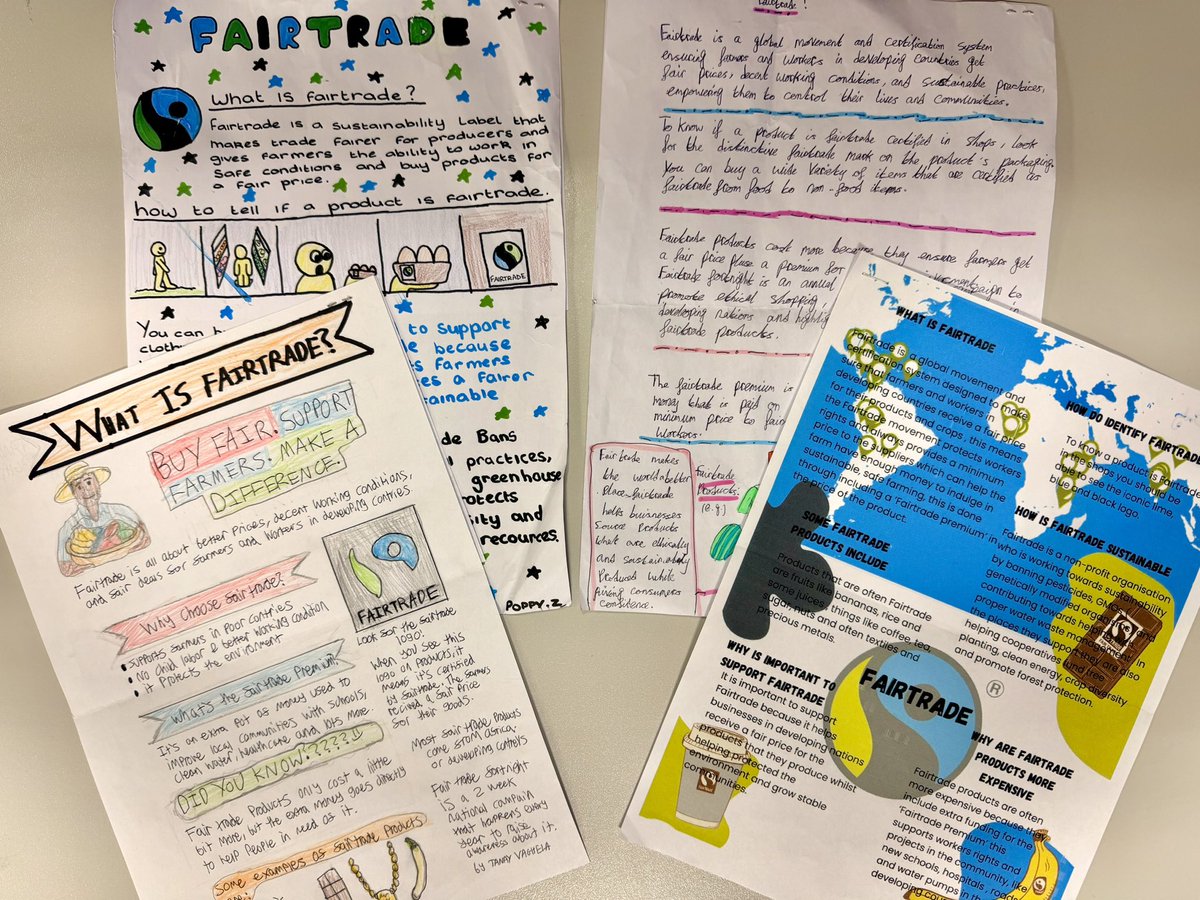 FAIRTRADE
What is fairtrade?
Fairtrade is a sustainability Label that
makes trade fairer for producers and
gives farmers the ability to work in
safe conditions and buy products for
a fair price.
how to tell if a product is fairtrade.
FAIRTRADE
You can
to support
because
farmers
a fairer
Bans
practices,
greenhouse
and
recources.
POPPY.Z
Fairtrade?
Fairtrade is a global movement and certification system
ensuring farmers and workers in developing countries get
fair prices, decent working conditions, and sustainable practices,
empowering them to control their lives and communities.
To know if a product is fairtrade certified in shops, look
for the distinctive fairtrade mark on the product's packaging.
You can buy a wide variety of items that are certified as
fairtrade from food to non-food items.
Fairtrade products cost more because they ensure farmers get
a fair price pluse a premium for
Fairtrade fortnight is an annual
promote ethical shopping,
developing nations and
fairtrade products.
The fairtrade premium is
money that is paid on
minimum price to
workers.
Fairtrade makes
the world a better
place. fairtrade
helps businesses
Source Products
that are ethically
and sustainably
Produced while
giving consumers
confidence.
Fairtrade
Products.
(e.g.)
WHAT IS FAIRTRADE?
BUY FAIR. SUPPORT
FARMERS. MAKE A
DIFFERENCE.
Fairtrade is all about better prices, decent working conditions,
and fair deals for farmers and workers in developing contries
Why choose fairtrade?
• Supports farmers in Poor contries
• No child labor & better working condition
• it Protects the environment
FAIRTRADE
Look for the fairtrade
logo!
When you see this
logo on Products, it
means it's certified
by fairtrade. The farmers
recived a fair Price
for their goods.
What's the fairtrade Premium?
It's an extra Pot of money used to
improve local communities with schools,
clean water, healthcare and lots more.
DID YOU KNOW?????!!
Fair trade Products only cost a little
bit more, but the extra money goes directly
to help People in need of it.
Most fair trade Products
come from Africa,
or developing contries
Fair trade fortnight
is a 2 week
national campain
that happens every
year to raise
awareness about it.
by
Some examples of fairtrade Products
WHAT IS FAIRTRADE
Fairtrade is a global movement and
certification system designed to make
sure that farmers and workers in
developing countries receive a fair price
for their products and crops, this means
the Fairtrade movement protects workers
rights and always provides a minimum
price to the suppliers which can help the
farm have enough money to indulge in
sustainable, safe farming, this is done
through including a 'Fairtrade premium' in
the price of the product.
HOW DO IDENTIFY FAIRTRADE
To know a product is Fairtrade
in the shops you should be
able to see the iconic lime,
blue and black logo.
HOW IS FAIRTRADE SUSTAINABLE
Fairtrade is a non-profit organisation
who is working towards sustainability
by banning pesticides, GMO's
genetically modified organisms and
contributing towards helping in
proper water waste management in
the places they support they are also
helping cooperatives fund tree
planting, clean energy, crop diversity
and promote forest protection.
SOME FAIRTRADE
PRODUCTS INCLUDE
Products that are often Fairtrade
are fruits like bananas, rice and
some juices, things like coffee, tea,
sugar, nuts and often textiles and
precious metals.
WHY IS IMPORTANT TO
SUPPORT FAIRTRADE
It is important to support
Fairtrade because it helps
businesses in developing nations
receive a fair price for the
products that they produce whilst
helping protected the
environment and grow stable
communities.
FAIRTRADE
®
WHY ARE FAIRTRADE
PRODUCTS MORE
EXPENSIVE
Fairtrade products are often
more expensive because they
include extra funding for the
'Fairtrade Premium' this
supports workers rights and
projects in the community, like
new schools, hospitals, roads
and water pumps in the
developing